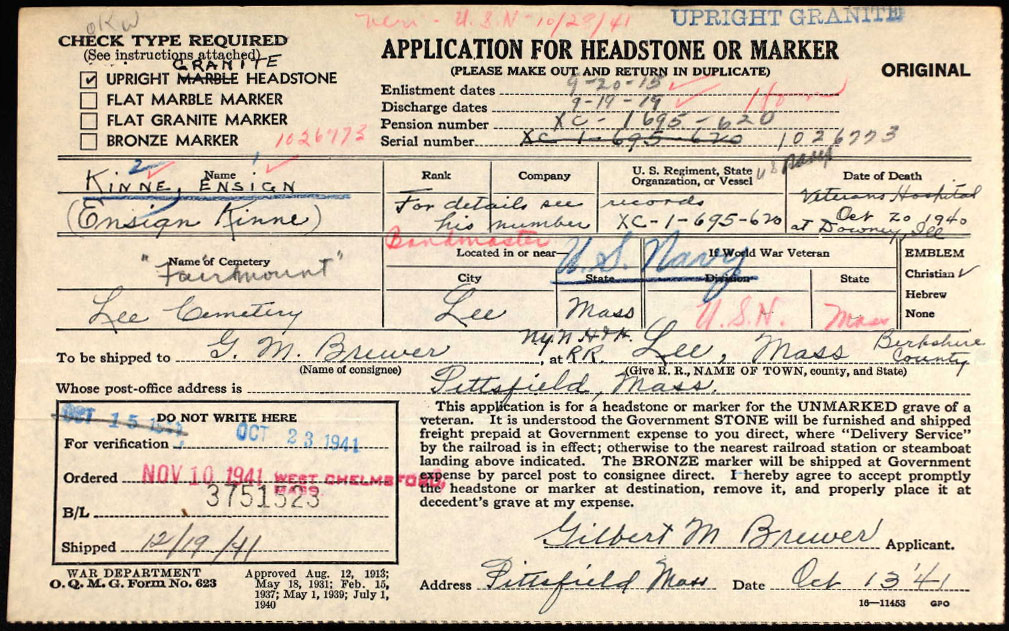 OKW
Veri - U.S.N - 10/29/41
UPRIGHT GRANITE
CHECK TYPE REQUIRED
(See instructions attached)
GRANITE
UPRIGHT MARBLE HEADSTONE
FLAT MARBLE MARKER
FLAT GRANITE MARKER
BRONZE MARKER
1026773
APPLICATION FOR HEADSTONE OR MARKER
(PLEASE MAKE OUT AND RETURN IN DUPLICATE)
ORIGINAL
Enlistment dates 9-20-15
Discharge dates 9-19-19 Hon
Pension number XC-1695-620
Serial number XC-1-695-620 1026773
2 1
Name
KINNE, ENSIGN
(Ensign Kinne)
Rank
Company
U. S. Regiment, State
Organzation, or Vessel
US Navy
Date of Death
For details see records
his number XC-1-695-620
Veterans Hospital
Oct 20 1940
at Downey, Ill
Bandmaster
U.S. Navy
Name of Cemetery
"Fairmount"
Lee Cemetery
Located in or near—
City
State
Lee
Mass
If World War Veteran
Division
State
U.S.N.
Mass
EMBLEM
Christian ✓
Hebrew
None
To be shipped to G. M. Brewer at R.R. N.Y.N.H.&H. Lee, Mass Berkshire County
(Name of consignee)
(Give R. R., NAME OF TOWN, county, and State)
Whose post-office address is Pittsfield, Mass.
OCT 15 1941
DO NOT WRITE HERE
For verification OCT 23 1941
Ordered NOV 10 1941 WEST CHELMSFORD, MASS.
3751323
B/L
Shipped 12/19/41
This application is for a headstone or marker for the UNMARKED grave of a
veteran. It is understood the Government STONE will be furnished and shipped
freight prepaid at Government expense to you direct, where "Delivery Service"
by the railroad is in effect; otherwise to the nearest railroad station or steamboat
landing above indicated. The BRONZE marker will be shipped at Government
expense by parcel post to consignee direct. I hereby agree to accept promptly
the headstone or marker at destination, remove it, and properly place it at
decedent's grave at my expense.
Gilbert M Brewer Applicant.
Address Pittsfield Mass Date Oct 13 '41
WAR DEPARTMENT
O. Q. M. G. Form No. 623
Approved Aug. 12, 1913;
May 18, 1931; Feb. 15,
1937; May 1, 1939; July 1,
1940
16—11453 GPO